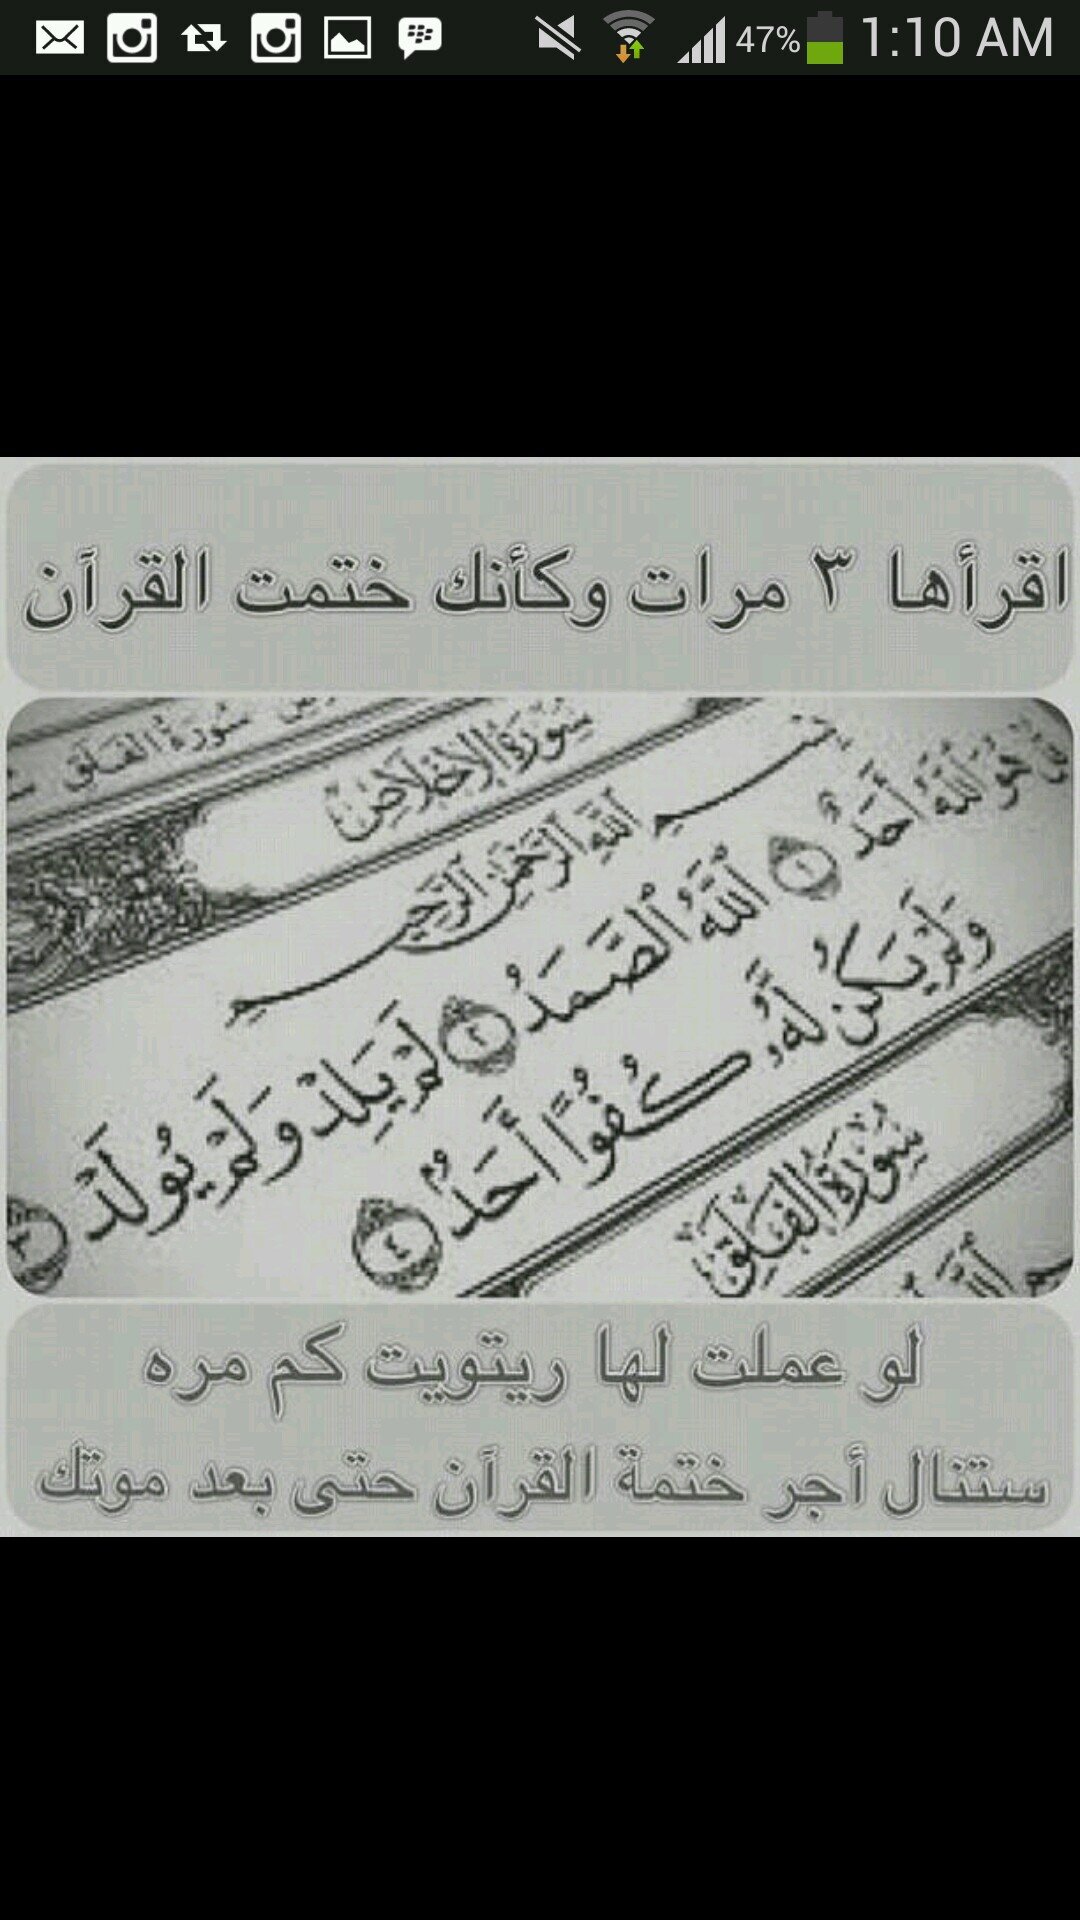 47% 1:10 AM
اقرأها ٣ مرات وكأنك ختمت القرآن
سُورَةُ الفَلَق
سُورَةُ الإِخْلَاصِ
ٱللَّهِ ٱلرَّحْمَٰنِ ٱلرَّحِيمِ
هُوَ ٱللَّهُ أَحَدٌ ١ ٱللَّهُ ٱلصَّمَدُ ٢ لَمْ يَلِدْ وَلَمْ يُولَدْ ٣
وَلَمْ يَكُن لَّهُۥ كُفُوًا أَحَدٌۢ ٤
سُورَةُ الفَلَقِ
لو عملت لها ريتويت كم مره
ستنال أجر ختمة القرآن حتى بعد موتك